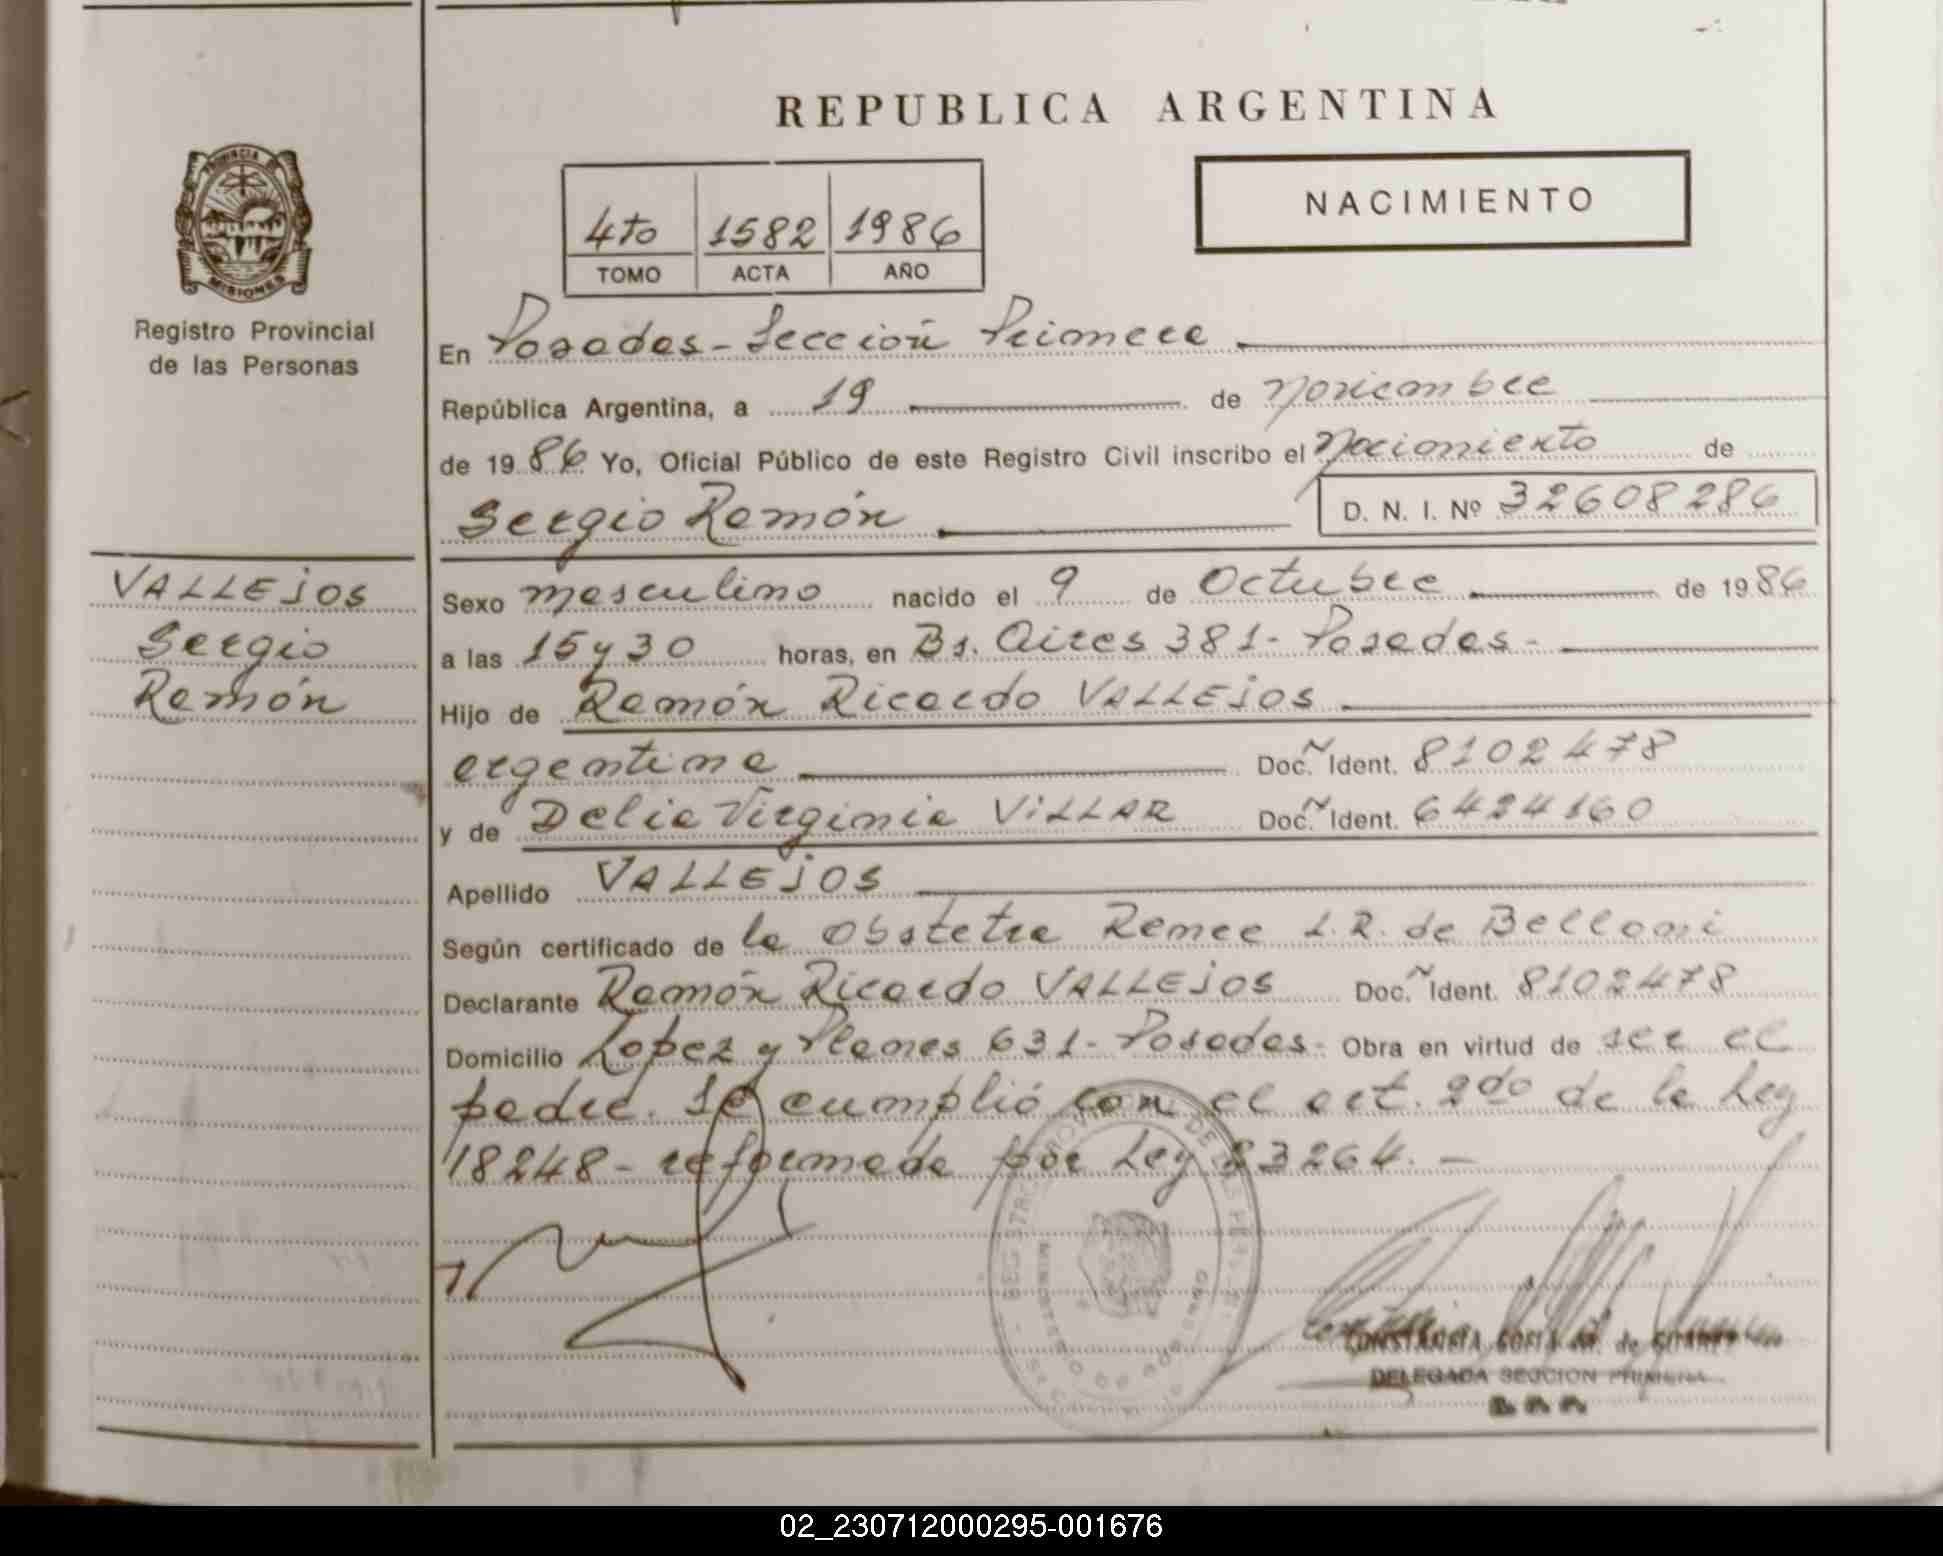 REPUBLICA ARGENTINA
PROVINCIA DE
MISIONES
Registro Provincial
de las Personas
4to 1582 1986
TOMO ACTA AÑO
NACIMIENTO
En Posadas - Sección Primera
República Argentina, a 19 de Noviembre
de 1986 Yo, Oficial Público de este Registro Civil inscribo el Nacimiento de
Sergio Ramón D. N. I. Nº 32608286
VALLEJOS
Sergio
Ramón
Sexo masculino nacido el 9 de Octubre de 1986
a las 15 y 30 horas, en Bs. Aires 381 - Posadas -
Hijo de Ramón Ricardo VALLEJOS
argentina Doc. Ident. 8102478
y de Delia Virginia VILLAR Doc. Ident. 6424160
Apellido VALLEJOS
Según certificado de la Obstetra Renee L. R. de Belloni
Declarante Ramón Ricardo VALLEJOS Doc. Ident. 8102478
Domicilio Lopez y Planes 631 - Posadas - Obra en virtud de ser el
padre. Se cumplió con el art. 2do de la Ley
18248 - reformada por Ley 23264. -
CONSTANCIA SOFIA de
DELEGADA SECCION PRIMERA
02_230712000295-001676